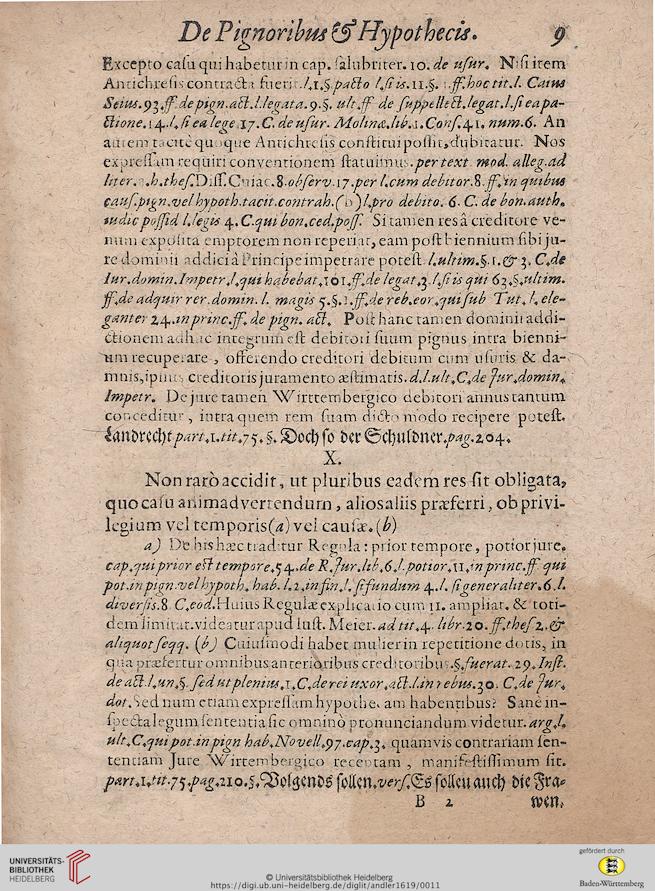 De Pignoribus & Hypothecis. 9
Excepto casu qui habetur in cap. salubriter. 10. de usur. Nisi item
Antichresis contracta fuerit. l. 1. §. pacto l. si is. 11. §. 1. ff. hoc tit. l. Caius
Seius. 93. ff. de pign. act. l. legata. 9. §. ult. ff. de suppellect. legat. l. si ea pa-
ctione. 14. l. si ea lege. 17. C. de usur. Molinæ. lib. 1. Cons. 41. num. 6. An
autem tacitè quoque Antichresis constitui possit, dubitatur. Nos
expressam requiri conventionem statuimus. per text. mod. alleg. ad
liter. h. thes. Diss. Cuiac. 8. observ. 17. per l. cum debitor. 8. ff. in quibus
caus. pign. vel hypoth. tacit. contrah. (b) l. pro debito. 6. C. de bon. auth.
iudic possid l. legis 4. C. qui bon. ced. poss. Si tamen res â creditore ve-
num exposita emptorem non reperiat, eam post biennium sibi ju-
re dominii addici à Principe impetrare potest. l. ultim. §. 1. & 3. C. de
Iur. domin. Impetr. l. qui habebat. 101. ff. de legat. 3. l. si is qui 63. §. ultim.
ff. de adquir rer. domin. l. magis 5. §. 1. ff. de reb. eor. qui sub Tut. l. ele-
ganter 24. in princ. ff. de pign. act. Post hanc tamen dominii addi-
ctionem adhuc integrum est debitori suum pignus intra bienni-
um recuperare, offerendo creditori debitum cum usuris & da-
mnis, ipsius creditoris juramento æstimatis. d. l. ult. C. de Jur. domin.
Impetr. De jure tamen Wirttembergico debitori annus tantum
conceditur, intra quem rem suam dicto modo recipere potest.
Landrecht part. 1. tit. 75. §. Doch so der Schuldner. pag. 204.
X.
Non rarò accidit, ut pluribus eadem res sit obligata,
quo casu animadvertendum, alios aliis præferri, ob privi-
legium vel temporis (a) vel causæ. (b)
a) De his hæc traditur Regula: prior tempore, potior jure.
cap. qui prior est tempore. 54. de R. Jur. lib. 6. l. potior. 11. in princ. ff. qui
pot. in pign. vel hypoth. hab. l. 2. in fin. l. si fundum 4. l. si generaliter. 6. l.
diversis. 8. C. eod. Huius Regulæ explicatio cum 11. ampliat. & toti-
dem limitat. videatur apud Iust. Meier. ad tit. 4. libr. 20. ff. thes. 2. &
aliquot seqq. (b) Cuiusmodi habet mulier in repetitione dotis, in
qua præfertur omnibus anterioribus creditoribus. §. fuerat. 29. Inst.
de act. l. un. §. sed ut plenius. 1. C. de rei uxor. act. l. in rebus. 30. C. de Jur.
dot. Sed num etiam expressam hypothecam habentibus? Sanè in-
specta legum sententia sic omninò pronunciandum videtur. arg. l.
ult. C. qui pot. in pign hab. Novell. 97. cap. 3. quamvis contrariam sen-
tentiam Jure Wirtembergico receptam, manifestissimum sit.
part. 1. tit. 75. pag. 210. §. Volgends sollen. vers. Es sollen auch die Fra-
B 2 wen,
UNIVERSITÄTS-
BIBLIOTHEK
HEIDELBERG
© Universitätsbibliothek Heidelberg
https://digi.ub.uni-heidelberg.de/diglit/andler1619/0011
gefördert durch
Baden-Württemberg